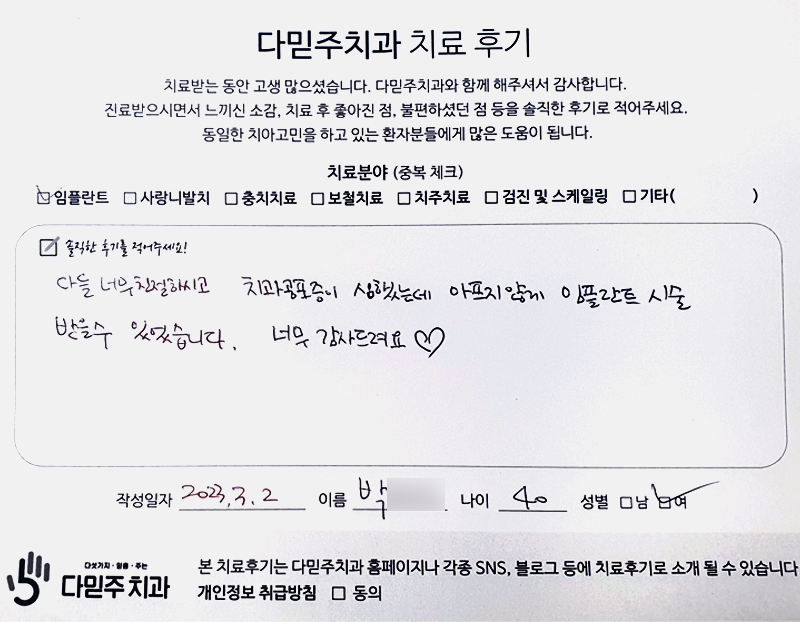 다믿주치과 치료 후기
치료받는 동안 고생 많으셨습니다. 다믿주치과와 함께 해주셔서 감사합니다.
진료받으시면서 느끼신 소감, 치료 후 좋아진 점, 불편하셨던 점 등을 솔직한 후기로 적어주세요.
동일한 치아고민을 하고 있는 환자분들에게 많은 도움이 됩니다.
치료분야 (중복 체크)
임플란트 사랑니발치 충치치료 보철치료 치주치료 검진 및 스케일링 기타( )
솔직한 후기를 적어주세요!
다들 너무친절하시고 치과공포증이 심했는데 아프지않게 임플란트 시술
받을수 있었습니다. 너무 감사드려요♡
작성일자 2023.3.2 이름 박 나이 40 성별 남 여
다섯가지·믿음·주는
다믿주치과
본 치료후기는 다믿주치과 홈페이지나 각종 SNS, 블로그 등에 치료후기로 소개 될 수 있습니다
개인정보 취급방침 동의